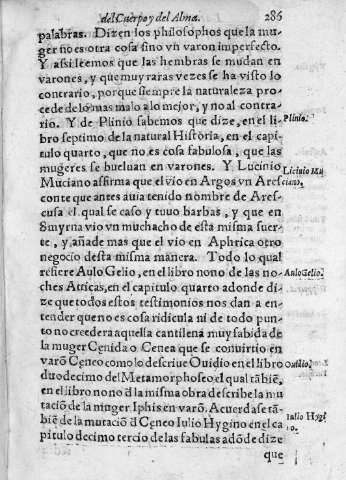 del Cuerpo y del Alma. 286
palabras. Dizen los philosophos que la mu-
ger no es otra cosa sino vn varon imperfecto.
Y assi leemos que las hembras se mudan en
varones, y que muy raras vezes se ha visto lo
contrario, porque siempre la naturaleza pro-
cede de lo mas malo a lo mejor, y no al contra-
rio. Y de Plinio sabemos que dize, en el li-
Plinio.
bro septimo de la natural Historia, en el capi-
tulo quarto, que no es cosa fabulosa, que las
mugeres se bueluan en varones. Y Lucinio
Licinio Mu
Muciano affirma que el vio en Argos vn Ares
ciano.
conte que antes auia tenido nombre de Ares-
cusa el qual se caso y tuuo barbas, y que en
Smyrna vio vn muchacho de esta misma suer-
te, y añade mas que el vio en Aphrica otro
negocio desta misma manera. Todo lo qual
refiere Aulo Gelio, en el libro nono de las no-
Aulo Gelio.
ches Atticas, en el capitulo quarto adonde di
ze que todos estos testimonios nos dan a en-
tender que no es cosa ridicula ni de todo pun-
to no creedera aquella cantilena muy sabida de
la muger Cenida o Cenea que se conuirtio en
varõ Ceneo como lo descriue Ouidio en el libro
Ouidio.
duodecimo del Metamorphoseo el qual tãbiẽ,
en el libro nono đ la misma obra describe la mu
taciõ de la muger Iphis en varõ. Acuerdase tã-
biẽ de la mutaciõ đ Ceneo Iulio Hygino en el ca
Iulio Hygi
no.
pitulo decimo tercio de las fabulas adõde dize
que